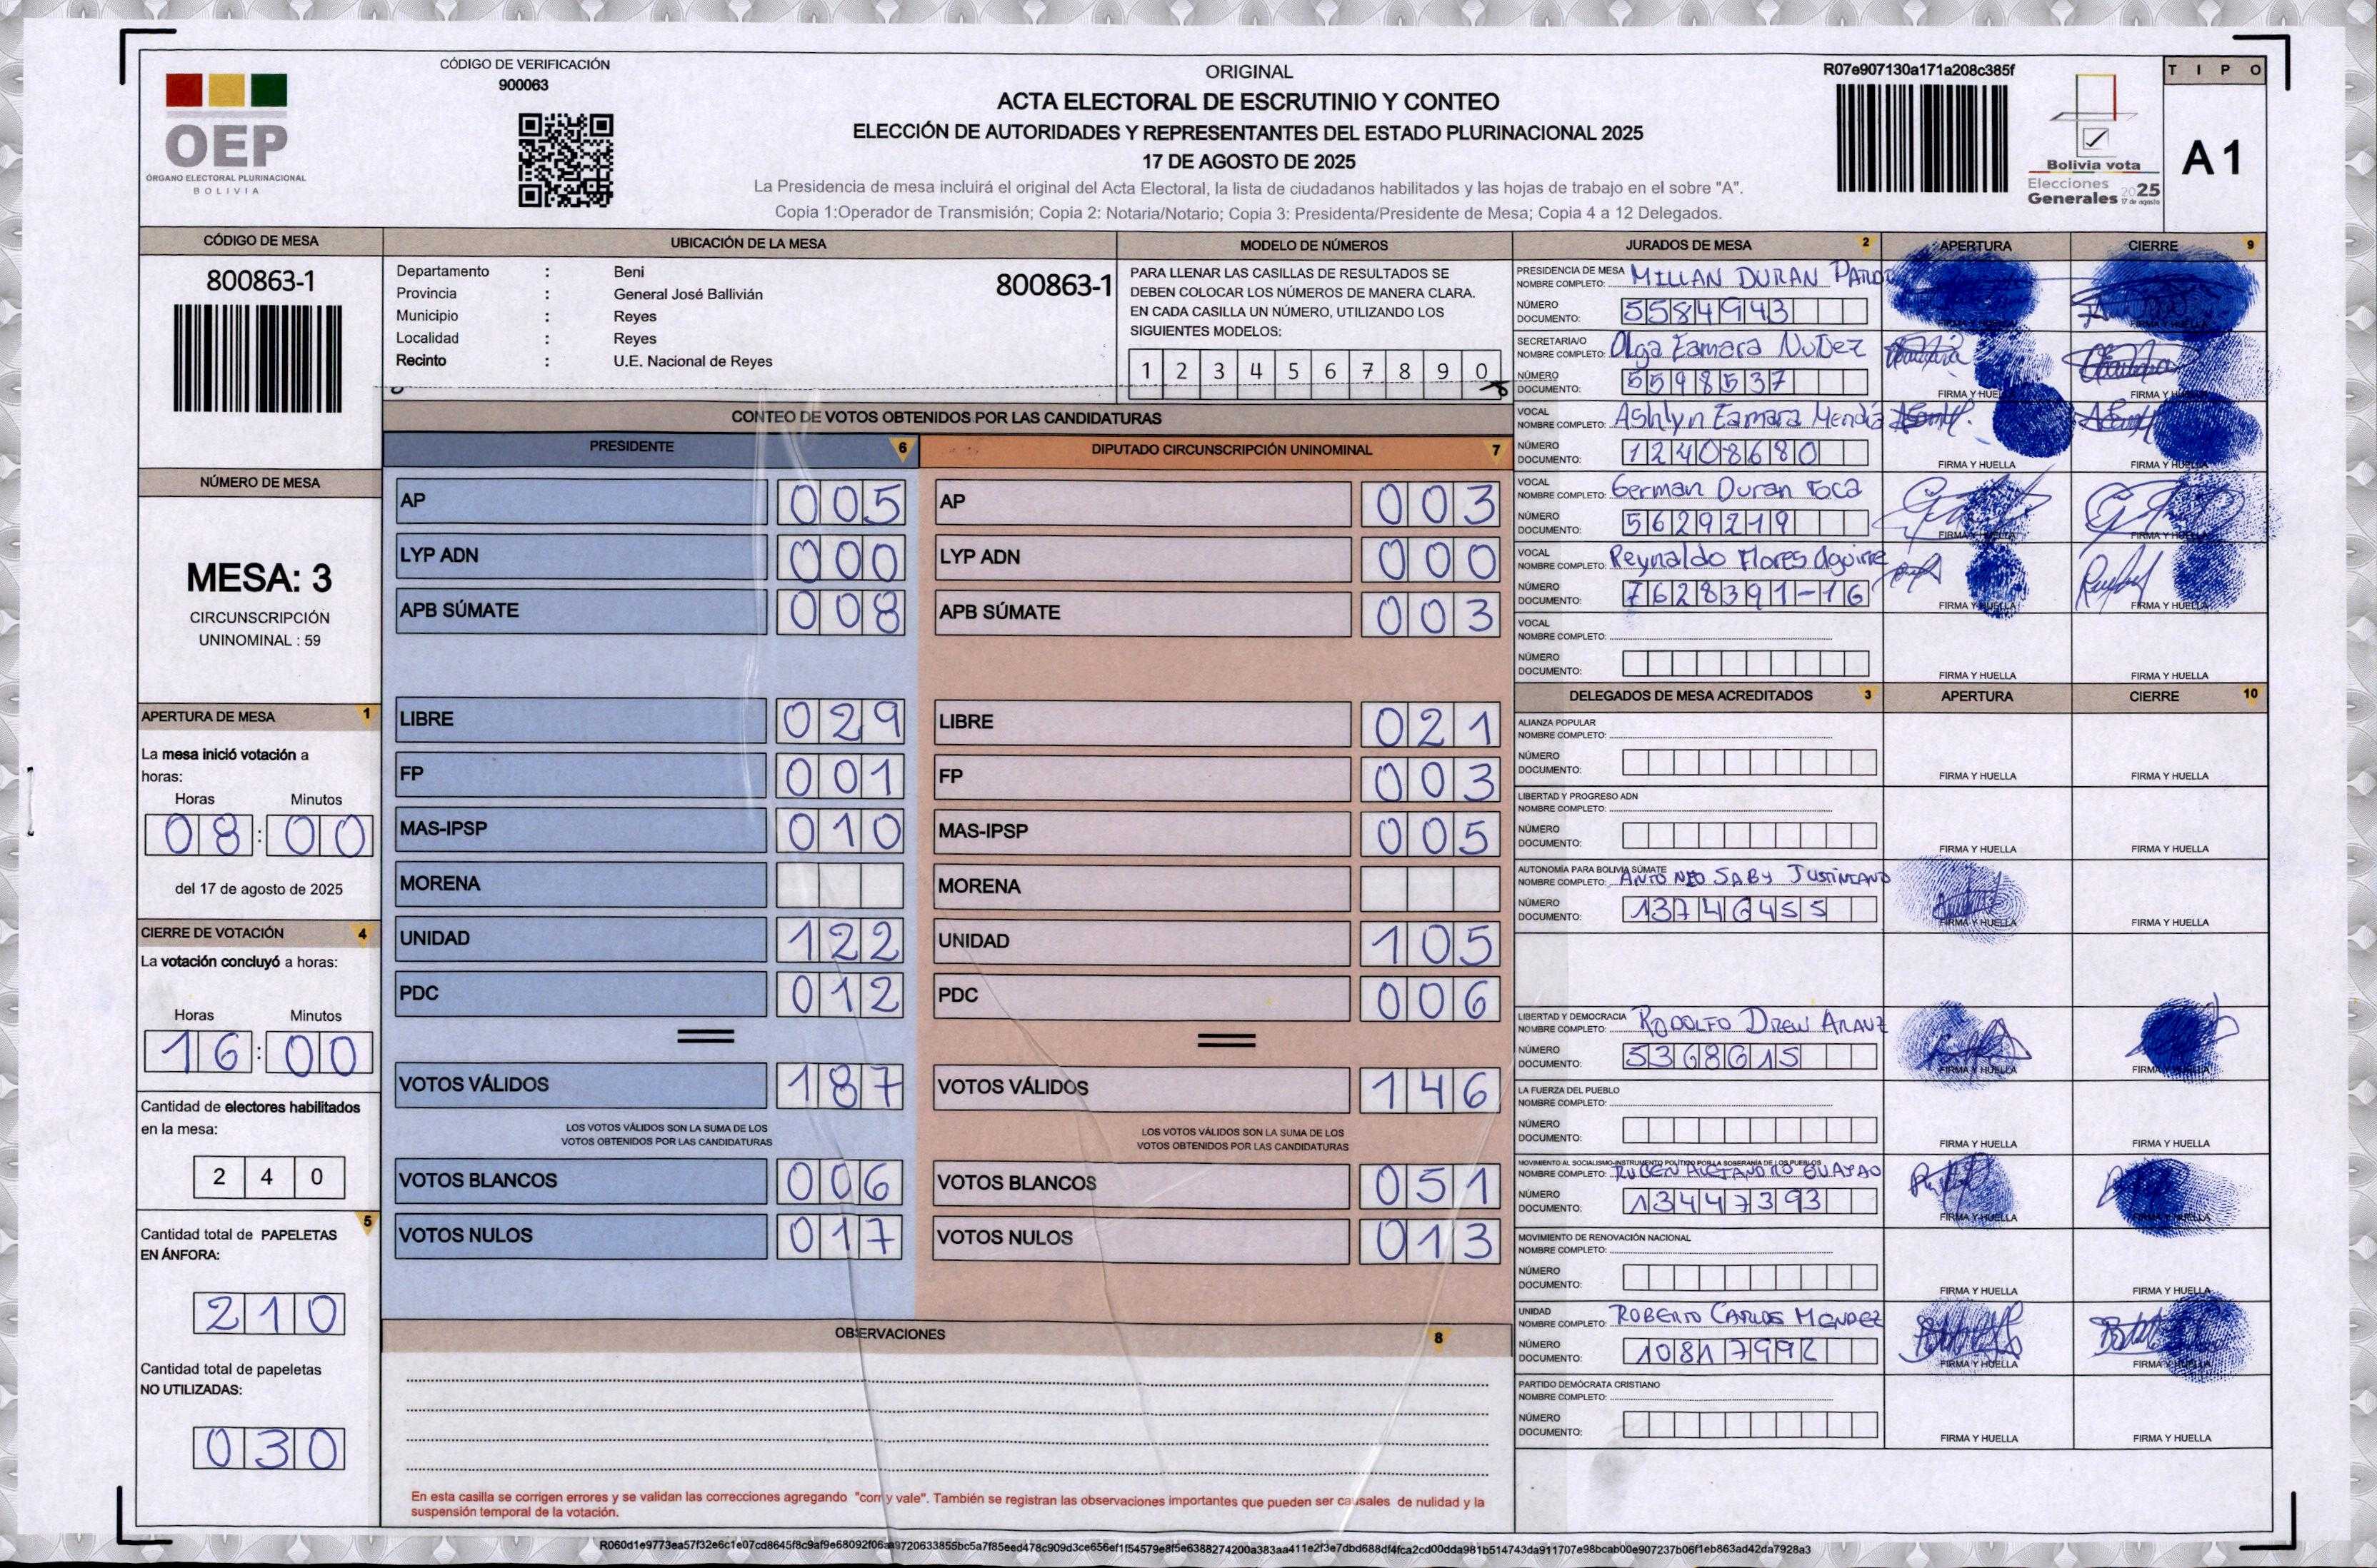 CÓDIGO DE VERIFICACIÓN
900063
OEP
ÓRGANO ELECTORAL PLURINACIONAL
BOLIVIA
ORIGINAL
ACTA ELECTORAL DE ESCRUTINIO Y CONTEO
ELECCIÓN DE AUTORIDADES Y REPRESENTANTES DEL ESTADO PLURINACIONAL 2025
17 DE AGOSTO DE 2025
La Presidencia de mesa incluirá el original del Acta Electoral, la lista de ciudadanos habilitados y las hojas de trabajo en el sobre "A".
Copia 1:Operador de Transmisión; Copia 2: Notaria/Notario; Copia 3: Presidenta/Presidente de Mesa; Copia 4 a 12 Delegados.
R07e907130a171a208c385f
Bolivia vota
Elecciones
Generales 2025
17 de agosto
TIPO
A1
CÓDIGO DE MESA
800863-1
UBICACIÓN DE LA MESA
Departamento : Beni
800863-1
Provincia : General José Ballivián
Municipio : Reyes
Localidad : Reyes
Recinto : U.E. Nacional de Reyes
MODELO DE NÚMEROS
PARA LLENAR LAS CASILLAS DE RESULTADOS SE
DEBEN COLOCAR LOS NÚMEROS DE MANERA CLARA.
EN CADA CASILLA UN NÚMERO, UTILIZANDO LOS
SIGUIENTES MODELOS:
1 2 3 4 5 6 7 8 9 0
NÚMERO DE MESA
MESA: 3
CIRCUNSCRIPCIÓN
UNINOMINAL : 59
APERTURA DE MESA 1
La mesa inició votación a
horas:
Horas Minutos
08:00
del 17 de agosto de 2025
CIERRE DE VOTACIÓN 4
La votación concluyó a horas:
Horas Minutos
16:00
Cantidad de electores habilitados
en la mesa:
240
5
Cantidad total de PAPELETAS
EN ÁNFORA:
210
Cantidad total de papeletas
NO UTILIZADAS:
030
CONTEO DE VOTOS OBTENIDOS POR LAS CANDIDATURAS
PRESIDENTE 6
AP 005
LYP ADN 000
APB SÚMATE 008
LIBRE 029
FP 001
MAS-IPSP 010
MORENA
UNIDAD 122
PDC 012
VOTOS VÁLIDOS 187
LOS VOTOS VÁLIDOS SON LA SUMA DE LOS
VOTOS OBTENIDOS POR LAS CANDIDATURAS
VOTOS BLANCOS 006
VOTOS NULOS 017
DIPUTADO CIRCUNSCRIPCIÓN UNINOMINAL 7
AP 003
LYP ADN 000
APB SÚMATE 003
LIBRE 021
FP 003
MAS-IPSP 005
MORENA
UNIDAD 105
PDC 006
VOTOS VÁLIDOS 146
LOS VOTOS VÁLIDOS SON LA SUMA DE LOS
VOTOS OBTENIDOS POR LAS CANDIDATURAS
VOTOS BLANCOS 051
VOTOS NULOS 013
OBSERVACIONES 8
En esta casilla se corrigen errores y se validan las correcciones agregando "corr y vale". También se registran las observaciones importantes que pueden ser causales de nulidad y la
suspensión temporal de la votación.
JURADOS DE MESA 2 APERTURA CIERRE 9
PRESIDENCIA DE MESA
NOMBRE COMPLETO: MILLAN DURAN
NÚMERO
DOCUMENTO: 5584943
FIRMA Y HUELLA FIRMA Y HUELLA
SECRETARIA/O
NOMBRE COMPLETO: Olga Eamara Nuñez
NÚMERO
DOCUMENTO: 5598537
FIRMA Y HUELLA FIRMA Y HUELLA
VOCAL
NOMBRE COMPLETO: Ashlyn Eamara Mendía
NÚMERO
DOCUMENTO: 12408680
FIRMA Y HUELLA FIRMA Y HUELLA
VOCAL
NOMBRE COMPLETO: German Duran Roca
NÚMERO
DOCUMENTO: 5629219
FIRMA Y HUELLA FIRMA Y HUELLA
VOCAL
NOMBRE COMPLETO: Reynaldo Flores Aguirre
NÚMERO
DOCUMENTO: 7628391-16
FIRMA Y HUELLA FIRMA Y HUELLA
VOCAL
NOMBRE COMPLETO:
NÚMERO
DOCUMENTO:
FIRMA Y HUELLA FIRMA Y HUELLA
DELEGADOS DE MESA ACREDITADOS 3 APERTURA CIERRE 10
ALIANZA POPULAR
NOMBRE COMPLETO:
NÚMERO
DOCUMENTO:
FIRMA Y HUELLA FIRMA Y HUELLA
LIBERTAD Y PROGRESO ADN
NOMBRE COMPLETO:
NÚMERO
DOCUMENTO:
FIRMA Y HUELLA FIRMA Y HUELLA
AUTONOMÍA PARA BOLIVIA SÚMATE
NOMBRE COMPLETO: ANTONEO SABY JUSTINIANO
NÚMERO
DOCUMENTO: 13746455
FIRMA Y HUELLA FIRMA Y HUELLA
LIBERTAD Y DEMOCRACIA
NOMBRE COMPLETO: RODOLFO DREW ARAUZ
NÚMERO
DOCUMENTO: 5368615
FIRMA Y HUELLA FIRMA Y HUELLA
LA FUERZA DEL PUEBLO
NOMBRE COMPLETO:
NÚMERO
DOCUMENTO:
FIRMA Y HUELLA FIRMA Y HUELLA
MOVIMIENTO AL SOCIALISMO-INSTRUMENTO POLÍTICO POR LA SOBERANÍA DE LOS PUEBLOS
NOMBRE COMPLETO: RUBEN ALEJANDRO GUAYAO
NÚMERO
DOCUMENTO: 13447393
FIRMA Y HUELLA FIRMA Y HUELLA
MOVIMIENTO DE RENOVACIÓN NACIONAL
NOMBRE COMPLETO:
NÚMERO
DOCUMENTO:
FIRMA Y HUELLA FIRMA Y HUELLA
UNIDAD
NOMBRE COMPLETO: ROBERTO CARLOS MENDEZ
NÚMERO
DOCUMENTO: 10817992
FIRMA Y HUELLA FIRMA Y HUELLA
PARTIDO DEMÓCRATA CRISTIANO
NOMBRE COMPLETO:
NÚMERO
DOCUMENTO:
FIRMA Y HUELLA FIRMA Y HUELLA